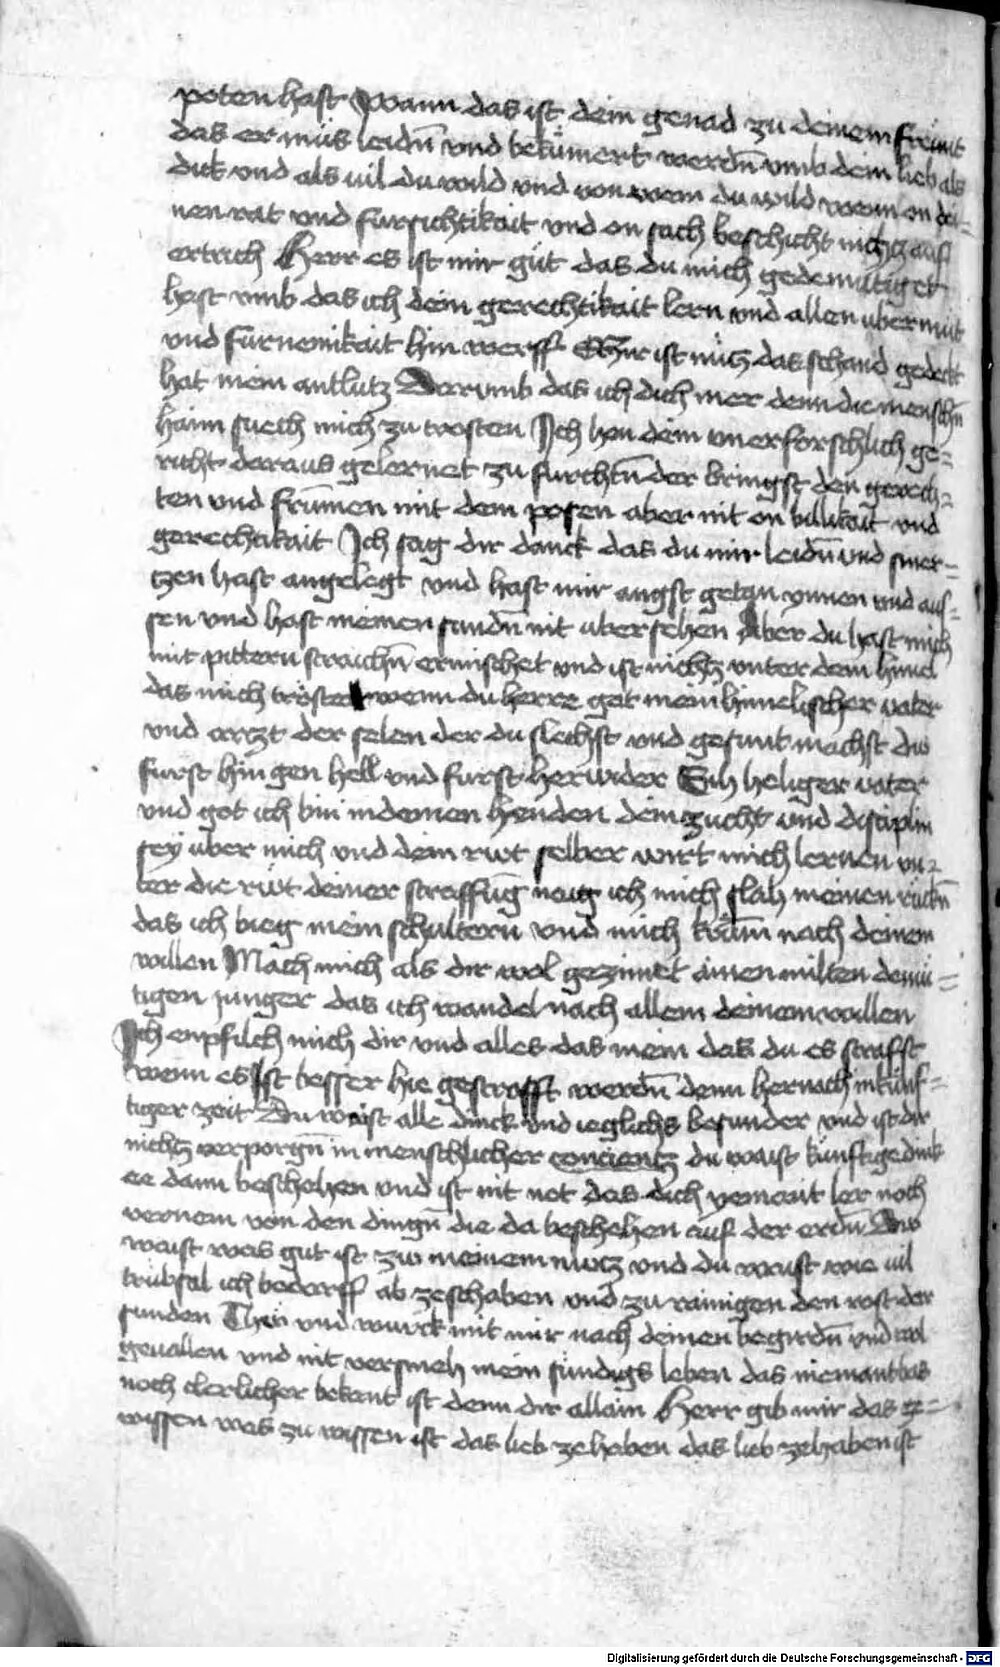 poten hast Wann das ist dein genad zu deinem freunt
das er mus leidn̄ vnd bekümert werdn̄ vmb dein lieb als
dik vnd als uil du wild vnd von wem du wild wenn on dei=
nen rat vnd fursichtikait vnd on sach beschicht nichtz auf
ertrich Herr es ist mir güt das du mich gedemütiget
hast vmb das ich dein gerechtikait lern vnd allen ubermüt
vnd furnemikait hin werff Es ist mir nütz das schand gedekt
hat mein antlutz Darvmb das ich dich mer denn die menschn̄
haim suech mich zu trosten Ich hon dein vnerforschlich ge=
richt daraus gelernet zu furchtn̄ der bringst den gerech=
ten vnd frumen mit dem posen aber nit on billikait vnd
gerechtikait Ich sag dir danck das du mir leidn̄ vnd smer=
tzen hast angelegt vnd hast mir angst getan ynnen vnd aus=
sen vnd hast meinen sundn̄ nit ubersehen Aber du hast mich
mit pittern straichn̄ ermischet vnd ist nichtz vnter dem himel
das mich tröstet wenn du herre got mein himelischer vater
vnd arczt der selen der du slechst vnd gesunt machst du
furst hin gen hell vnd furst herwider Sih heliger vater
vnd got ich bin in deinen henden dein zucht vnd disciplin
sey über mich vnd dein rüt selber wirt mich lernen vn=
ter die rüt deiner straffūg naig ich mich slah meinen rückn̄
das ich bieg mein schultern vnd mich krüm nach deinem
willen Mach mich als dir wol gezimet ainen milten demü=
tigen junger das ich wandel nach allem deinem willen
Ich enpfilch mich dir vnd alles das mein das du es straffst
wenn es ist besser hie gestrafft werdn̄ denn hernach in künf=
tiger zeit Du waist alle dinck vnd ieglichs besunder vnd ist dir
nichtz verporgn̄ in menschlicher concientz du waist künftige dink
ee dann beschehen vnd ist nit not das dich yemant ler noch
vernem von den dingn̄ die da beschehen auf der erdn̄ Du
waist was gut ist zw meinem nutz vnd du waist wie uil
trübsal ich bedarff ab zeschaben vnd zu rainigen den rost der
sunden Thu vnd wurck mit mir nach deinen begirdn̄ vnd wol
geuallen vnd nit versmeh mein sündigs leben das niemant bas
noch clerlicher bekant ist denn dir allain Herr gib mir das ze=
wissen was zu wissen ist das lieb ze haben das lieb zehaben ist
Digitalisierung gefördert durch die Deutsche Forschungsgemeinschaft - DFG